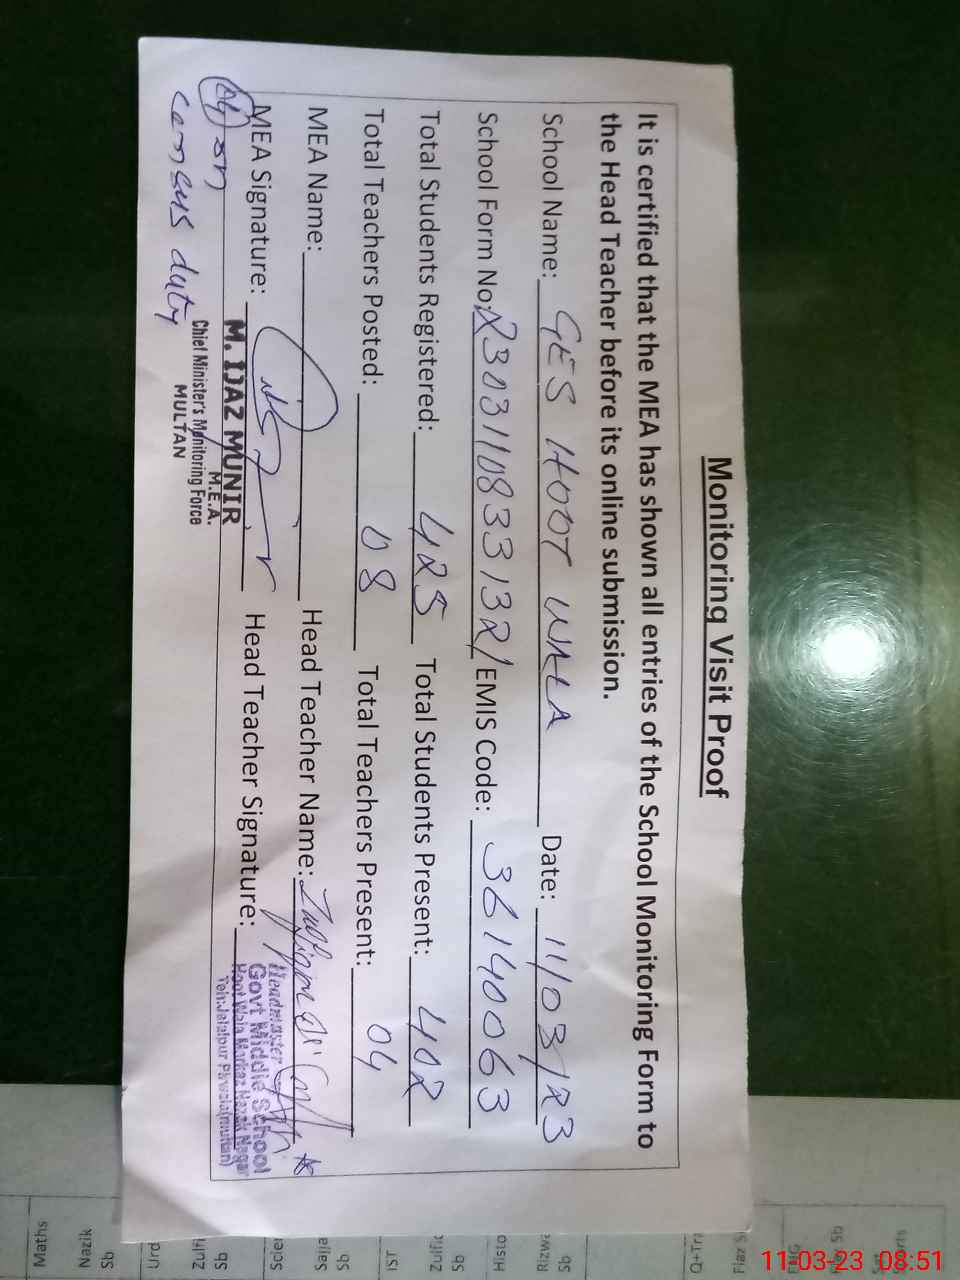 Monitoring Visit Proof
It is certified that the MEA has shown all entries of the School Monitoring Form to
the Head Teacher before its online submission.
School Name: GES HOOT WALA Date: 11/03/23
School Form No: 2303110833132/ EMIS Code: 36140063
Total Students Registered: 425 Total Students Present: 402
Total Teachers Posted: 08 Total Teachers Present: 04
MEA Name: Head Teacher Name: Zulfiqar Ali
MEA Signature: Head Teacher Signature:
M. IJAZ MUNIR
M.E.A.
Chief Minister's Monitoring Force
MULTAN
Headmaster
Govt Middle School
Hoot Wala Markaz Nazak Nagar
Teh: Jalalpur Pirwala (multan)
04 on
census duty
Maths
Sb
Nazik
Sb
IST
Sb
Histo
Sb
11-03-23 08:51